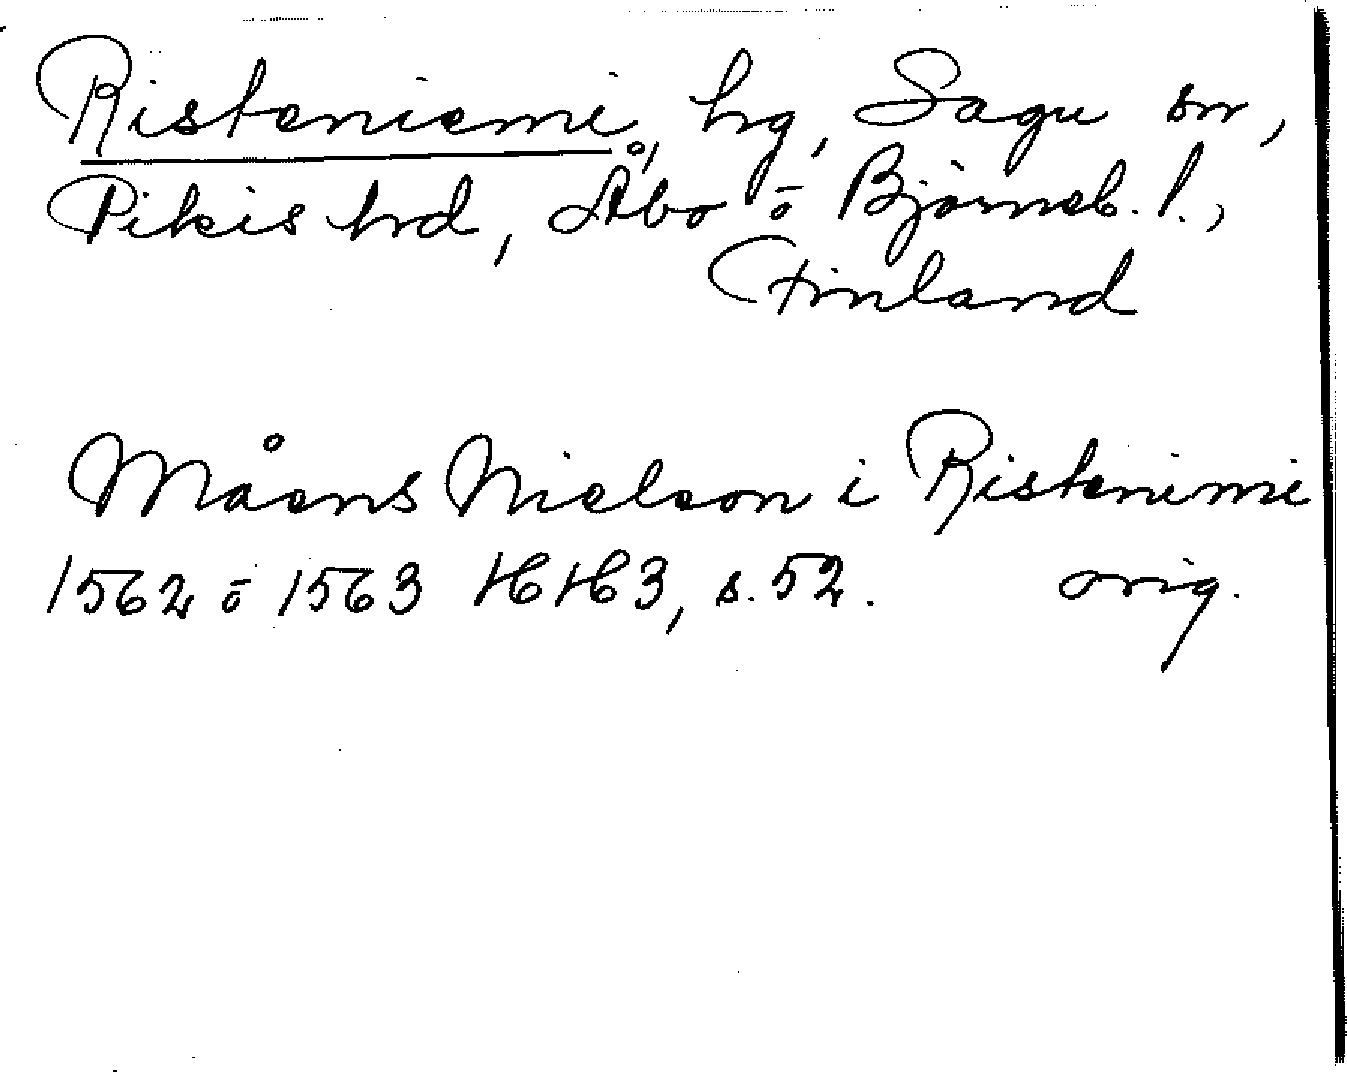 Risteniemi, hg, Sagu sn,
Pikis hrd, Åbo o Björneb. l.,
Finland
Måens Nielson i Ristenimi
1562 o 1563 HH3, s. 52. orig.